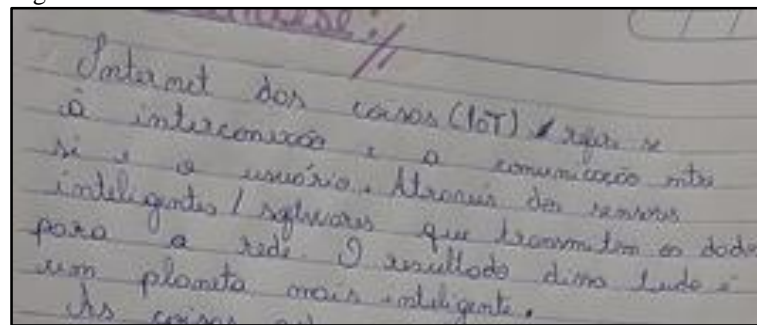 Internet das coisas (IoT) refere se
a interconexão e a comunicação entre
si e o usuário. Através dos sensores
inteligentes / softwares que transmitem os dados
para a rede. O resultado disso tudo é
um planeta mais inteligente.
As coisas